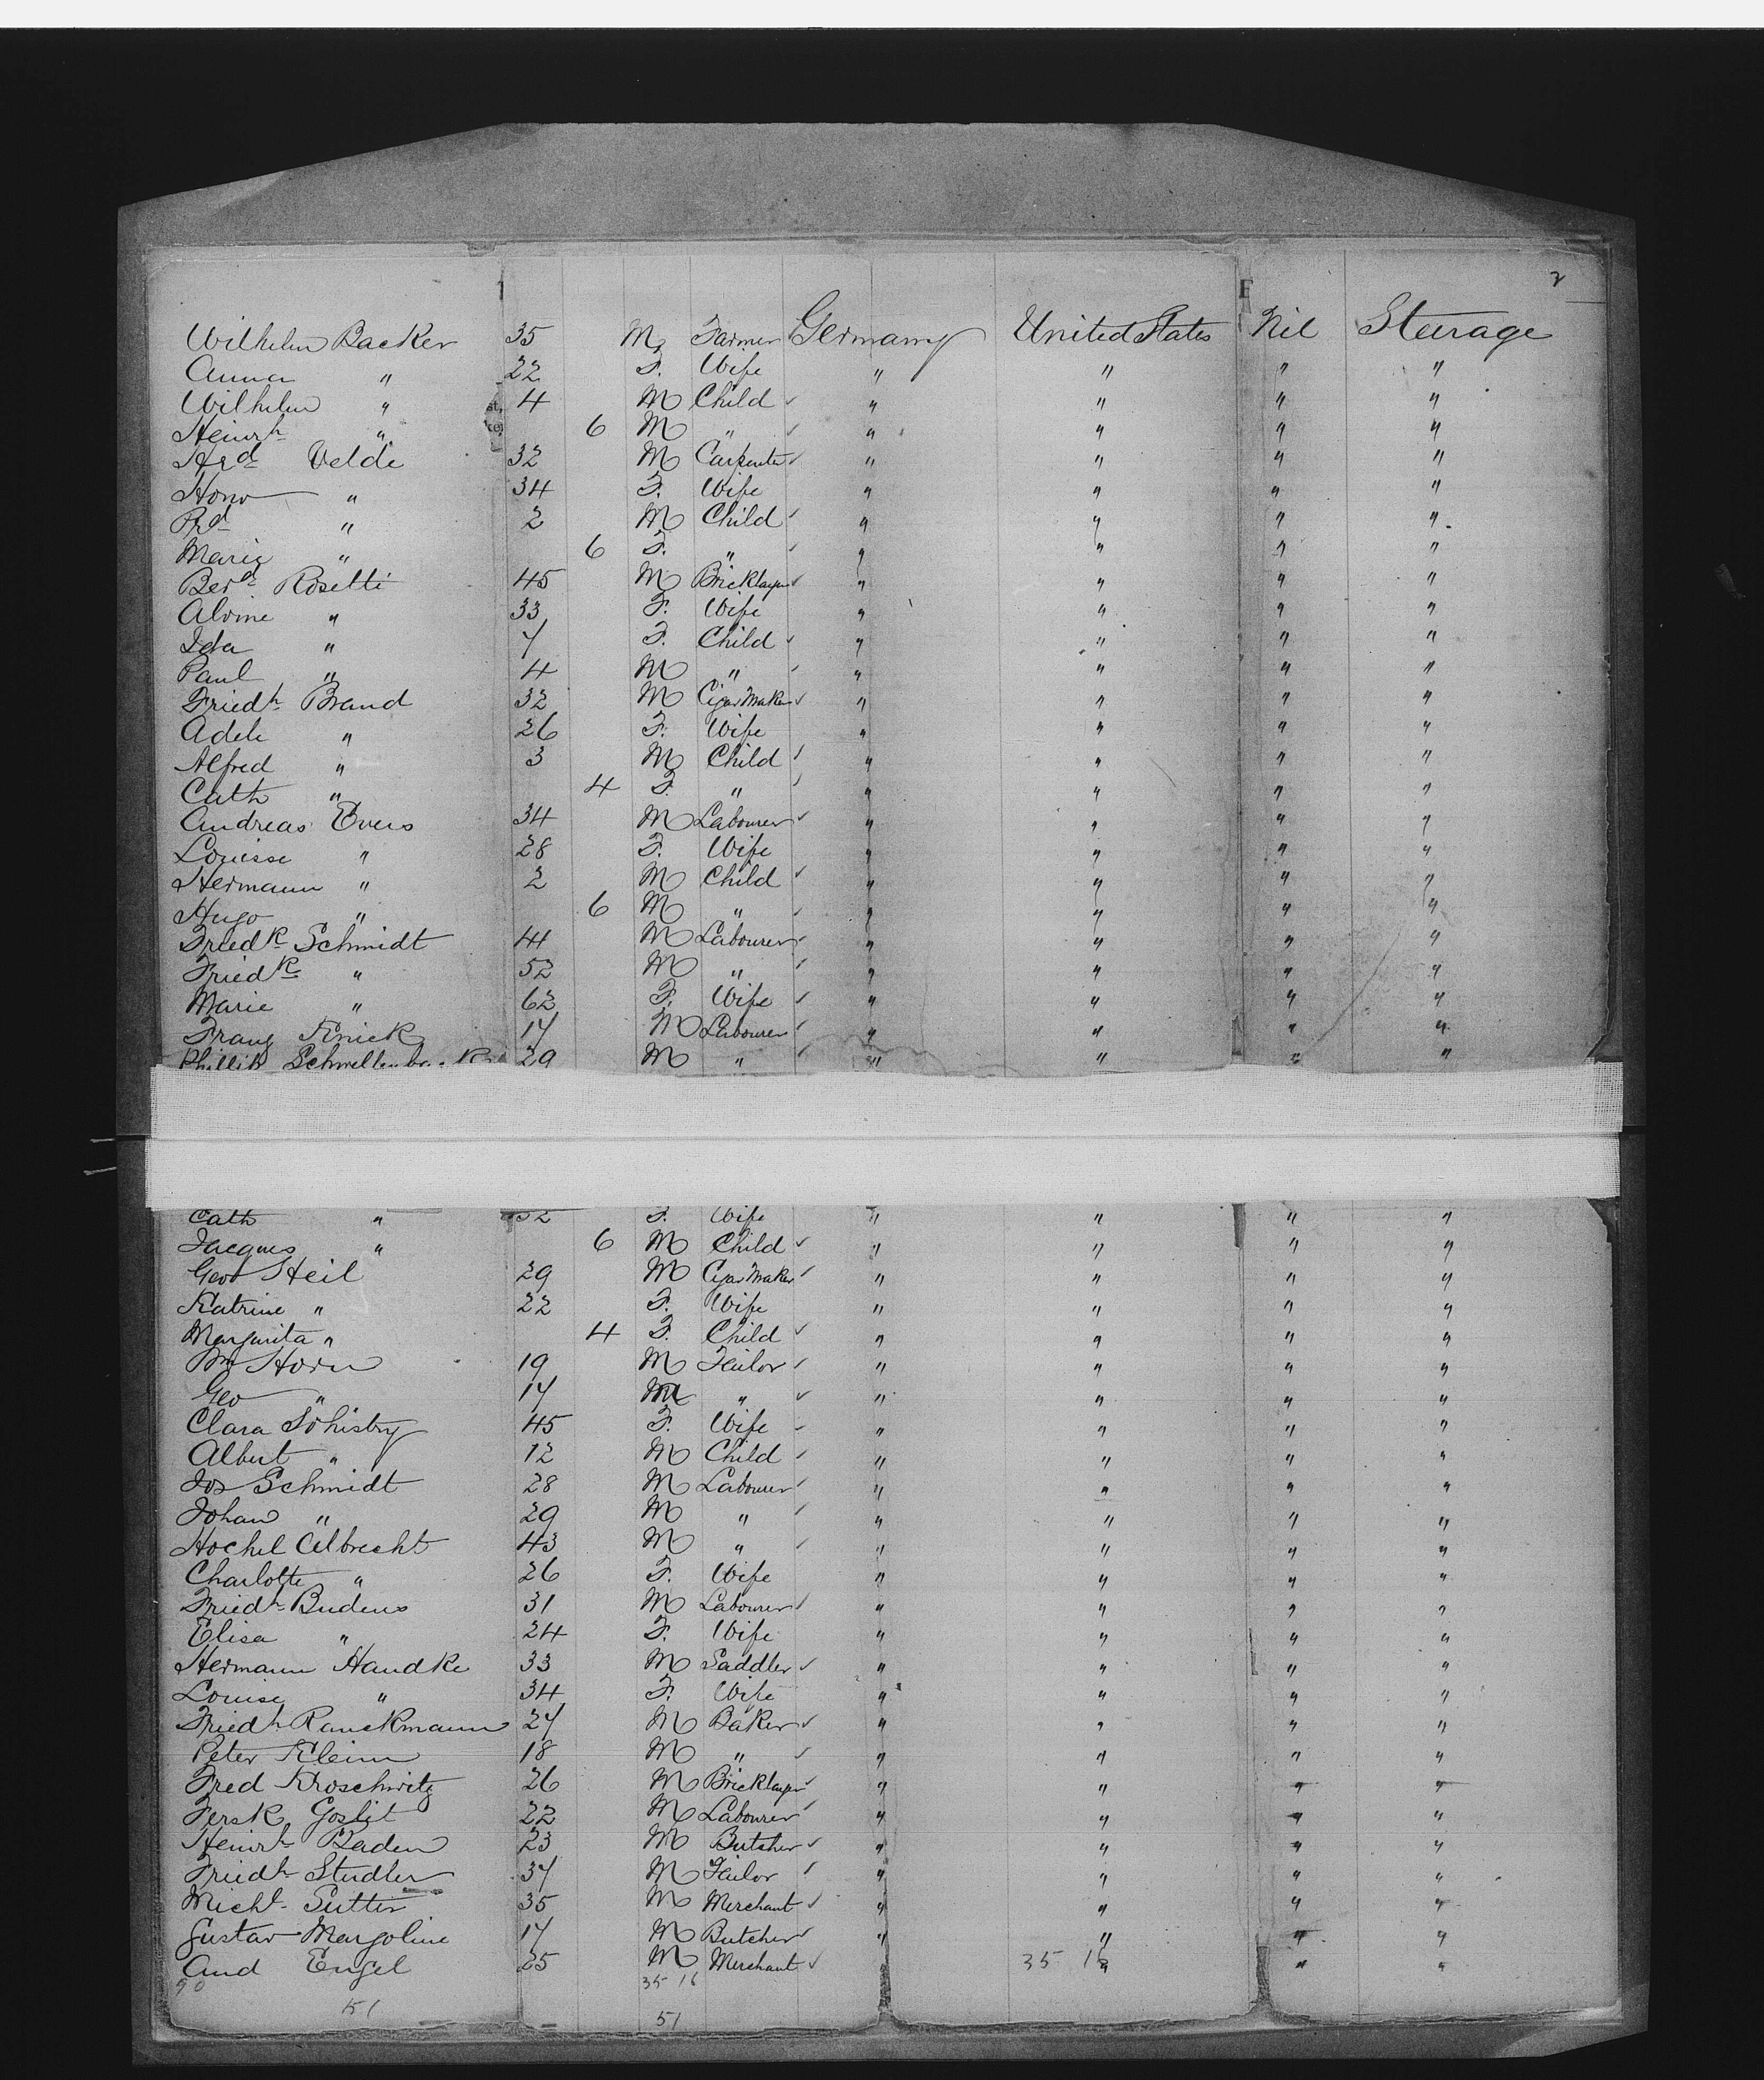 2
Wilhelm Backer 35 M. Farmer Germany United States Nil Steerage
Anna " 22 F. Wife " " " "
Wilhelm " 4 M Child " " " "
Heinrh " 6 M " " " " "
Velde 32 M Carpenter " " " "
" 34 F. Wife " " " "
" 2 M Child " " " "
Marie " 6 F. " " " " "
Berd Rosetti 45 M Bricklayer " " " "
Alvine " 33 F. Wife " " " "
Ida " 7 F. Child " " " "
Paul " 4 M " " " " "
Friedh Brand 32 M Cigar Maker " " " "
Adele " 26 F. Wife " " " "
Alfred " 3 M Child " " " "
Cath " 4 F. " " " " "
Andreas Evers 34 M Labourer " " " "
Louisse " 28 F. Wife " " " "
Hermann " 2 M Child " " " "
Hugo " 6 M " " " " "
Friedk Schmidt 44 M Labourer " " " "
Friedk " 52 M " " " " "
Marie " 62 F. Wife " " " "
Franz Knick 17 M Labourer " " " "
Phillip 29 M " " " " "
Cath " 32 F. Wife " " " "
Jacques " 6 M Child " " " "
Geo Heil 29 M Cigar Maker " " " "
Katrine " 22 F. Wife " " " "
Margarita " 4 F. Child " " " "
Horn 19 M Tailor " " " "
Geo " 17 M " " " " "
Clara 45 F. Wife " " " "
Albert " 12 M Child " " " "
Jos Schmidt 28 M Labourer " " " "
Johan " 29 M " " " " "
Hochel Albrecht 43 M " " " " "
Charlotte " 26 F. Wife " " " "
Friedh Budens 31 M Labourer " " " "
Elisa " 24 F. Wife " " " "
Hermann Handke 33 M Saddler " " " "
Louise " 34 F. Wife " " " "
Friedh Ranckmann 27 M Baker " " " "
Peter Kleinn 18 M " " " " "
Fred Kroschwitz 26 M Bricklayer " " " "
Fersk Goslit 22 M Labourer " " " "
Heinrh Baden 23 M Butcher " " " "
Friedh Studler 37 M Tailor " " " "
Michl Sutter 35 M Merchant " " " "
Gustav Margoline 17 M Butcher " " " "
And Engel 25 M Merchant " " " "
35 16
90 35 16
51 51